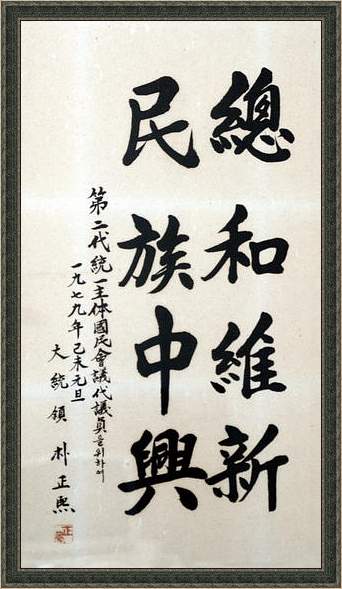 總和維新
民族中興
第二代統一主体國民會議代議員을위하여
一九七九年己未元旦
大統領 朴正熙